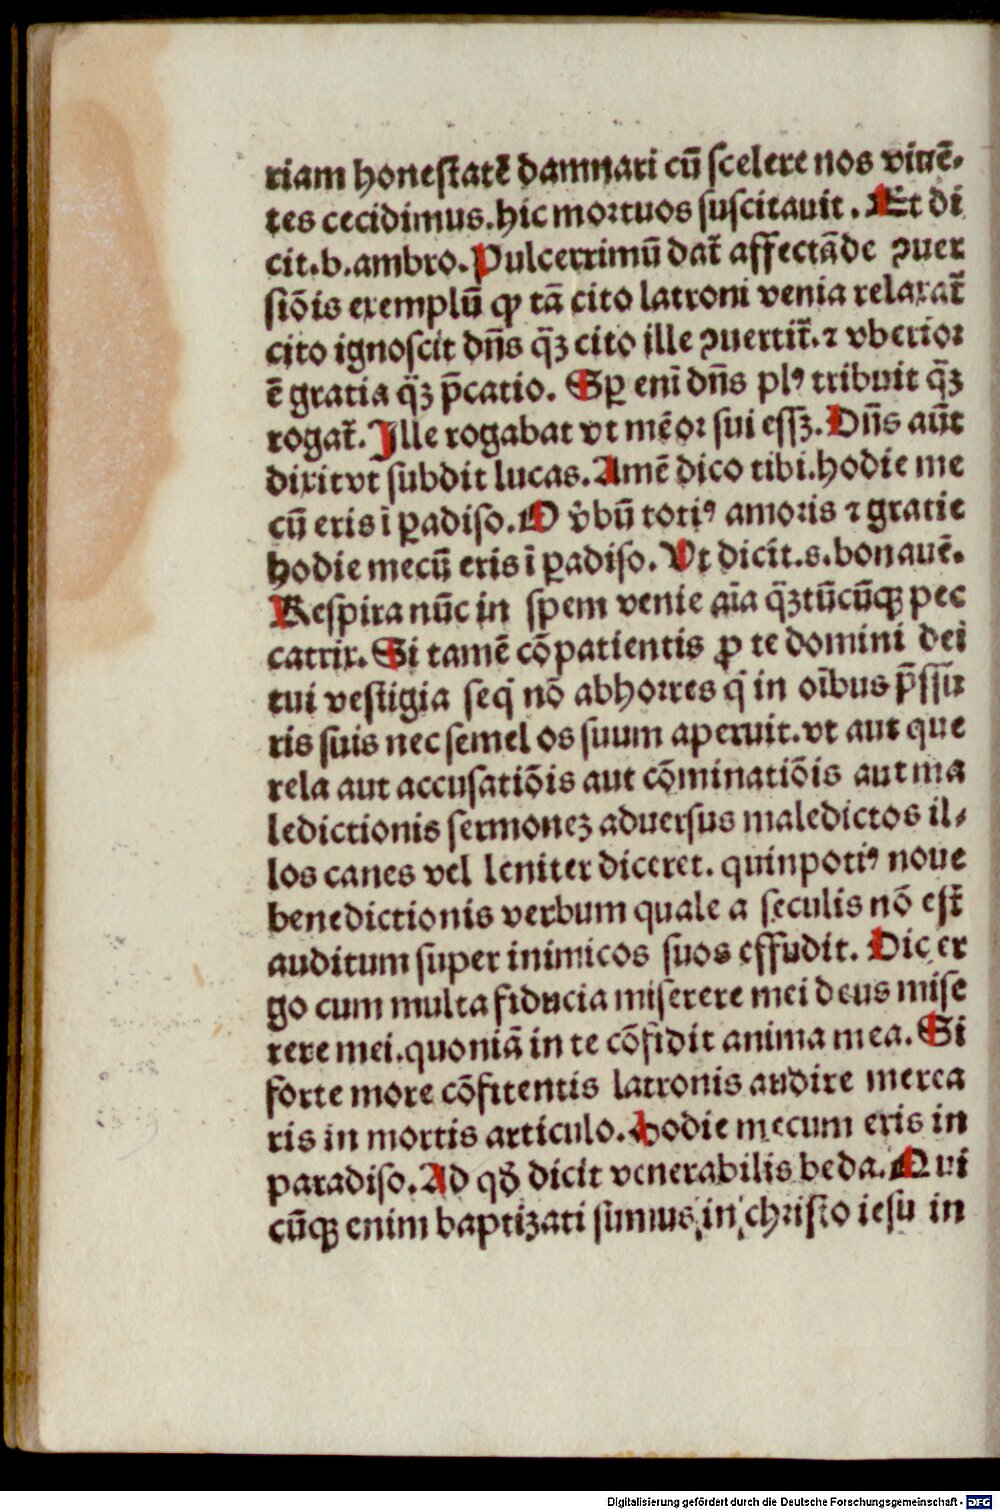 riam honestatē damnari cū scelere nos viuē-
tes cecidimus.hic moꝛtuos suscitauit. Et di
cit.b.ambro. Pulcerrimū dat̄ affectāde ꝯuer
siōis exemplū ꝙ tā cito latroni venia relaxat̄
cito ignoscit dn̄s q̄ꝫ cito ille ꝯuertit̄.⁊ vberioꝛ
ē gratia q̄ꝫ p̄catio. Sꝑ eni dn̄s plꝰ tribuit q̄ꝫ
rogat̄. Ille rogabat vt mēoꝛ sui essꝫ. Dn̄s aūt
dixit vt subdit lucas. Amē dico tibi.hodie me
cū eris ī ꝑadiso. O v̓bū totiꝰ amoꝛis ⁊ gratie
hodie mecū eris ī ꝑadiso. Vt dicit.s.bonauē.
Respira nūc in spem venie aīa q̄ꝫtūcūqꝫ pec
catrix. Si tamē cōpatientis ꝓ te domini dei
tui vestigia seq̓ nō abhoꝛres q̓ in oībus p̄ssu
ris suis nec semel os suum aperuit.vt aut que
rela aut accusatiōis aut cōminatiōis aut ma
ledictionis sermoneꝫ aduersus maledictos il-
los canes vel leniter diceret. quinpotiꝰ noue
benedictionis verbum quale a seculis nō est̄
auditum super inimicos suos effudit. Dic er
go cum multa fiducia miserere mei deus mise
rere mei.quoniā in te cōfidit anima mea. Si
forte more cōfitentis latronis audire merea
ris in mortis articulo. Hodie mecum eris in
paradiso. Ad qḋ dicit venerabilis beda. Qui
cūqꝫ enim baptizati sumus in christo iesu in
Digitalisierung gefördert durch die Deutsche Forschungsgemeinschaft - DFG